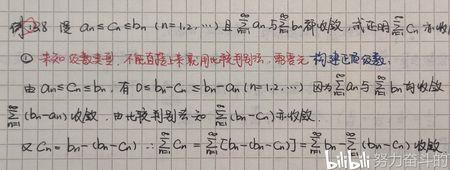 例13.8 设 aₙ≤Cₙ≤bₙ (n=1,2,…) 且 ∑ₙ₌₁^∞ aₙ 与 ∑ₙ₌₁^∞ bₙ 都收敛，试证明 ∑ₙ₌₁^∞ Cₙ 亦收
① 未知级数类型，不能直接上来就用比较判别法，需要先构建正项级数.
由 aₙ≤Cₙ≤bₙ，有 0≤bₙ-Cₙ≤bₙ-aₙ (n=1,2,…) 因为 ∑ₙ₌₁^∞ aₙ 与 ∑ₙ₌₁^∞ bₙ 均收敛
∑ₙ₌₁^∞ (bₙ-aₙ) 收敛. 由比较判别法知 ∑ₙ₌₁^∞ (bₙ-Cₙ) 亦收敛.
又 Cₙ=bₙ-(bₙ-Cₙ) ∴ ∑ₙ₌₁^∞ Cₙ = ∑ₙ₌₁^∞ [bₙ-(bₙ-Cₙ)] = ∑ₙ₌₁^∞ bₙ - ∑ₙ₌₁^∞ (bₙ-Cₙ) 收敛.
bilibili 努力奋斗的